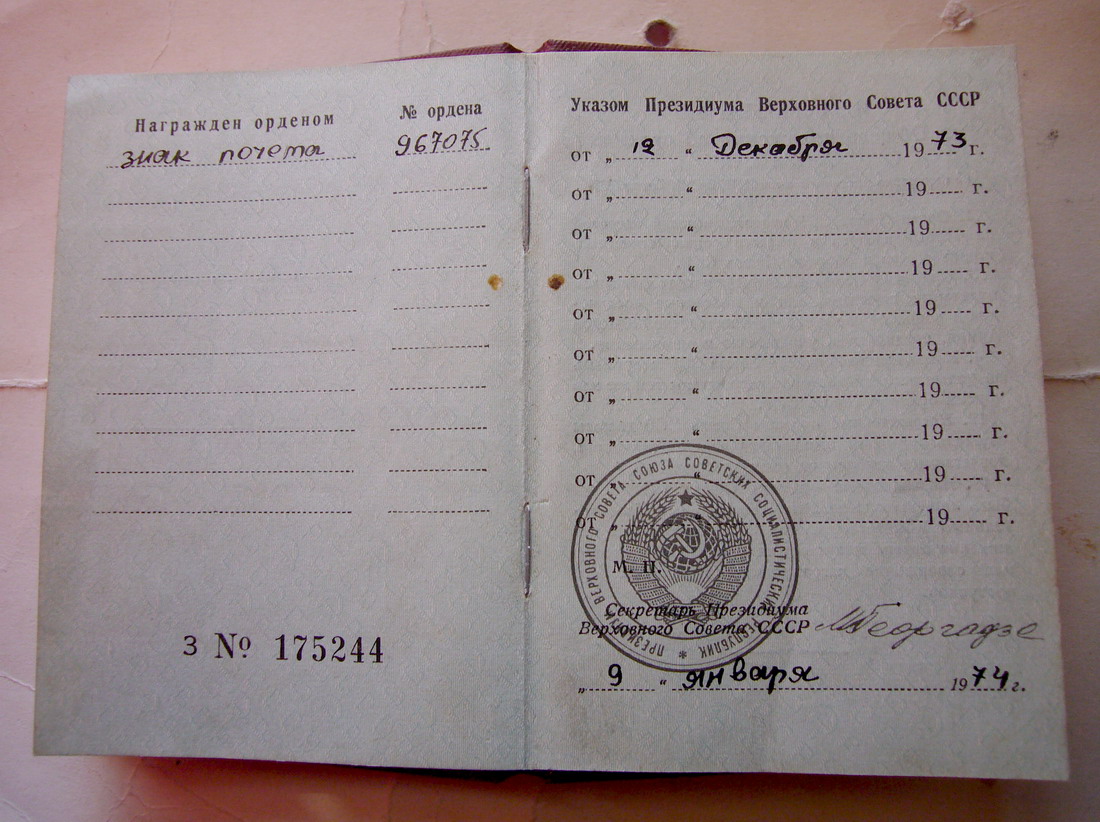 Награжден орденом
№ ордена
знак почета
967075
З № 175244
Указом Президиума Верховного Совета СССР
от „ 12 “ Декабря 1973 г.
от „ “ 19 г.
от „ “ 19 г.
от „ “ 19 г.
от „ “ 19 г.
от „ “ 19 г.
от „ “ 19 г.
от „ “ 19 г.
от „ “ 19 г.
от „ “ 19 г.
ПРЕЗИДИУМ ВЕРХОВНОГО СОВЕТА СОЮЗА СОВЕТСКИХ СОЦИАЛИСТИЧЕСКИХ РЕСПУБЛИК *
М. П.
Секретарь Президиума
Верховного Совета СССР МГеоргадзе
„ 9 “ января 1974 г.